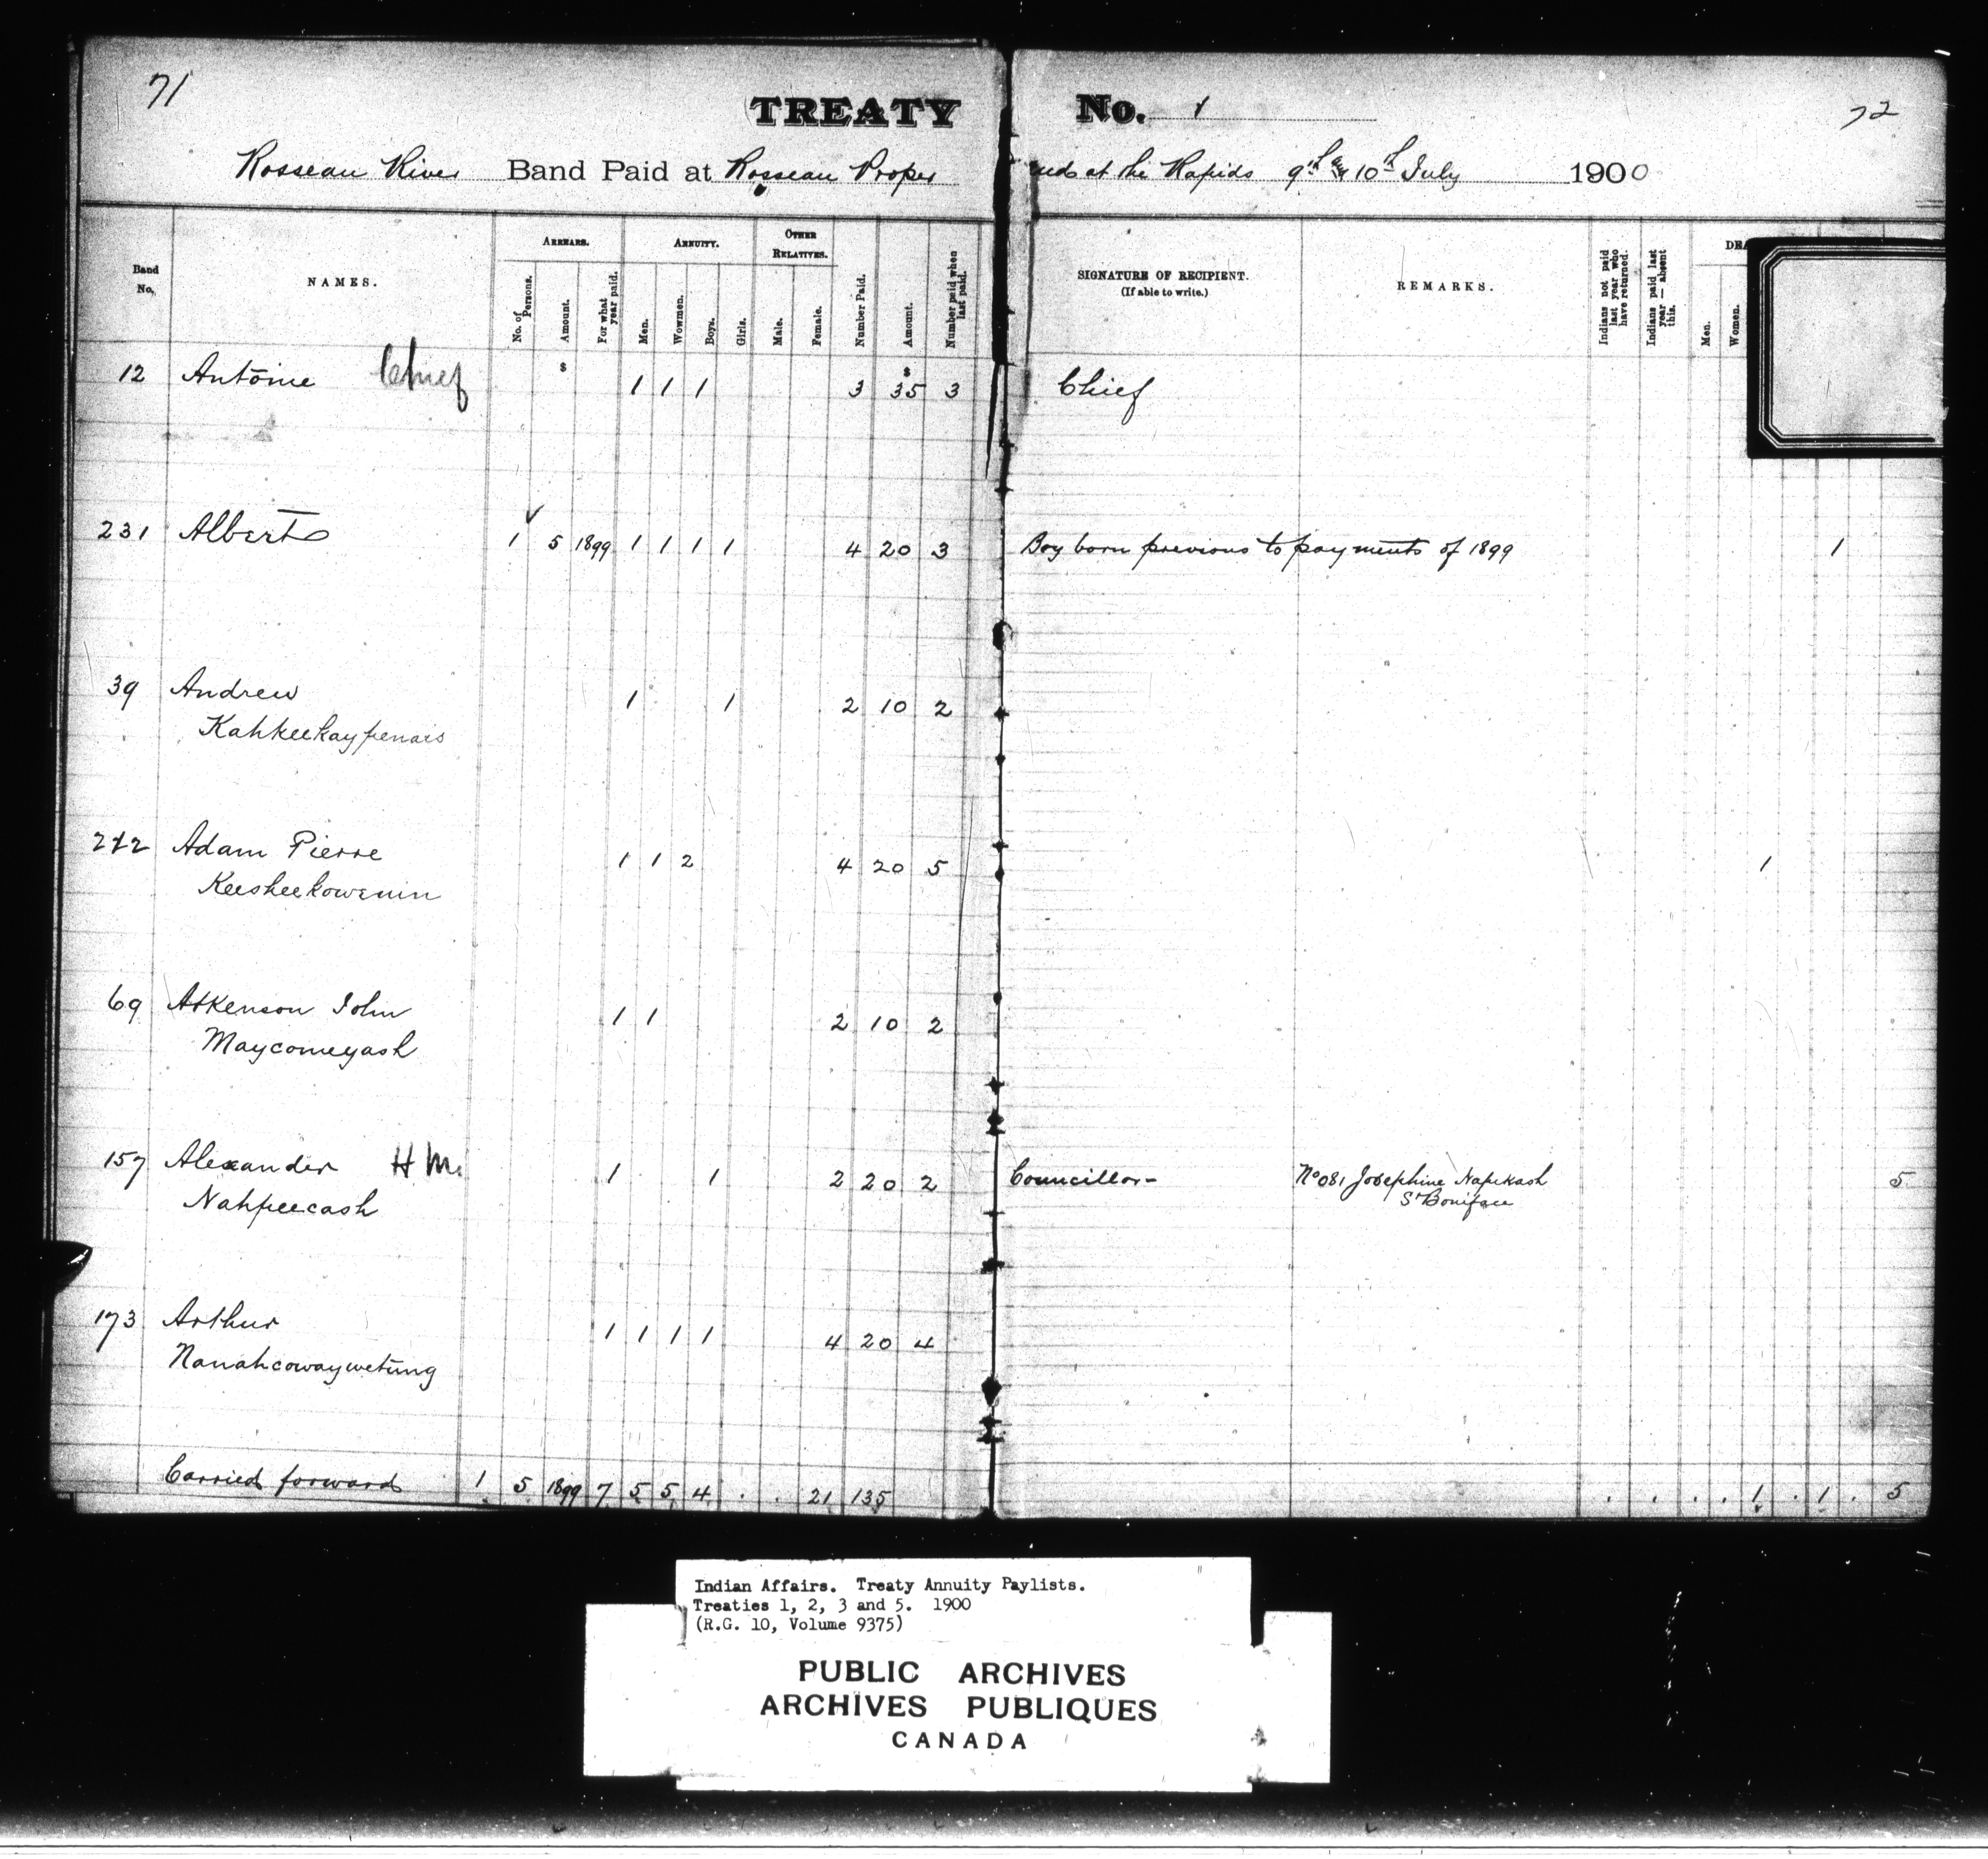 71
TREATY No. 1
72
Rosseau River Band Paid at Rosseau Proper and at the Rapids 9th & 10th July 1900
Band No.
NAMES.
ARREARS.
No. of Persons.
Amount.
For what year paid.
ANNUITY.
Men.
Wowmen.
Boys.
Girls.
OTHER RELATIVES.
Male.
Female.
Number Paid.
Amount.
Number paid when last paid.
SIGNATURE OF RECIPIENT.
(If able to write.)
REMARKS.
Indians not paid last year who have returned.
Indians paid last year — absent this.
Men.
Women.
$ $
12 Antoine Chief 1 1 1 3 35 3 Chief
231 Albert 1 5 1899 1 1 1 1 4 20 3 Boy born previous to payments of 1899 1
39 Andrew 1 1 2 10 2
Kahkeekaypenais
Adam Pierre 1 1 2 4 20 5 1
Keesheekowenin
69 Atkenson John 1 1 2 10 2
Maycomeyash
157 Alexander H M. 1 1 2 20 2 Councillor - No 081 Josephine Napekash 5
Nahpeecash St Boniface
173 Arthur 1 1 1 1 4 20 4
Nanahcowaywetung
Carried forward 1 5 1899 7 5 5 4 . . 21 135 . . . . 1 . 1 . 5
Indian Affairs. Treaty Annuity Paylists.
Treaties 1, 2, 3 and 5. 1900
(R.G. 10, Volume 9375)
PUBLIC ARCHIVES
ARCHIVES PUBLIQUES
CANADA